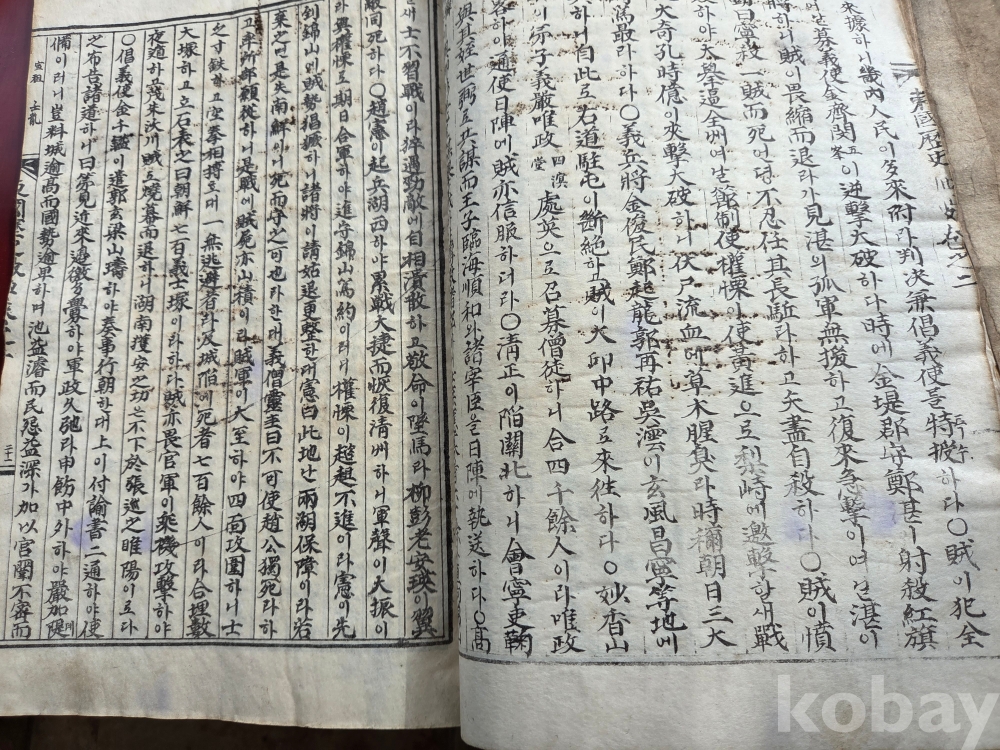 來據하니畿內人民이多來附라判決兼倡義使를特授하다○賊이犯全
여날募義使金齊閔이逆擊大破하다時에金堤郡守鄭湛이射殺紅旗
賊이畏縮而退라가見湛의孤軍無援하고復來急擊이여날湛이
曰寧殺一賊而死언뎡不忍任其長駈라하고矢盡自殺하다○賊이憤
하야大擧逼全州여날節制使權慄이使黃進으로梨峙에邀擊할새戰
大奇孔時億이夾擊大破하니伏尸流血에草木腥臭라時稱朝日三大
篤最라하다○義兵將金俊民鄭起龍郭再祐吳澐이玄風昌寧等地에
하니自此로右道駐屯이斷絶하고賊이大邱中路로來徃하다○妙香山
이弟子義嚴惟政四溟堂處英으로召募僧徒하니合四千餘人이라惟政
하야通使日陣에賊亦信服하더라○淸正이陷關北하니會寧吏鞠
與其孫世弼로共謀而王子臨海順和와諸宰臣을日陣에執送하다○高
새士不習戰이라猝遇勁敵에自相潰散하고敬命이墜馬라柳彭老安瑛이翼
敵同死하다○趙憲이起兵湖西하야累戰大捷而恢復淸州하니軍聲이大振이
라與權慄로期日合軍하야進守錦山爲約이러니權慄이趑趄不進이라憲이先
到錦山이라賊勢猖獗하니諸將이請姑退更整한대憲曰此地난兩湖保障이라若
棄之면是失南鮮이니死而守之可也라한대義僧靈圭曰不可使趙公獨死라하
고率所部願從하니是戰에賊屍亦山積이라賊軍이大至하야四面攻圍하니士
之寸鉄하고空拳相搏호대一無逃避者라及城陷에死者七百餘人이라合埋數
大塚하고立石表之曰朝鮮七百義士塚이라하다賊亦畏官軍이乘機攻擊하야
夜遁하고茂朱沃川賊도燒幕而退하니湖南獲安之功은不下於張巡之睢陽이로다
○倡義使金千鎰이遣郭玄梁山璹하야奏事行朝한대上이付諭書二通하야使
之布告諸道하니曰第見近來邊徼多釁하야軍政久弛라申飭中外하야嚴加隄
備이러니豈料城逾高而國勢逾卑하며池益濬而民怨益深가加以官闈不審而